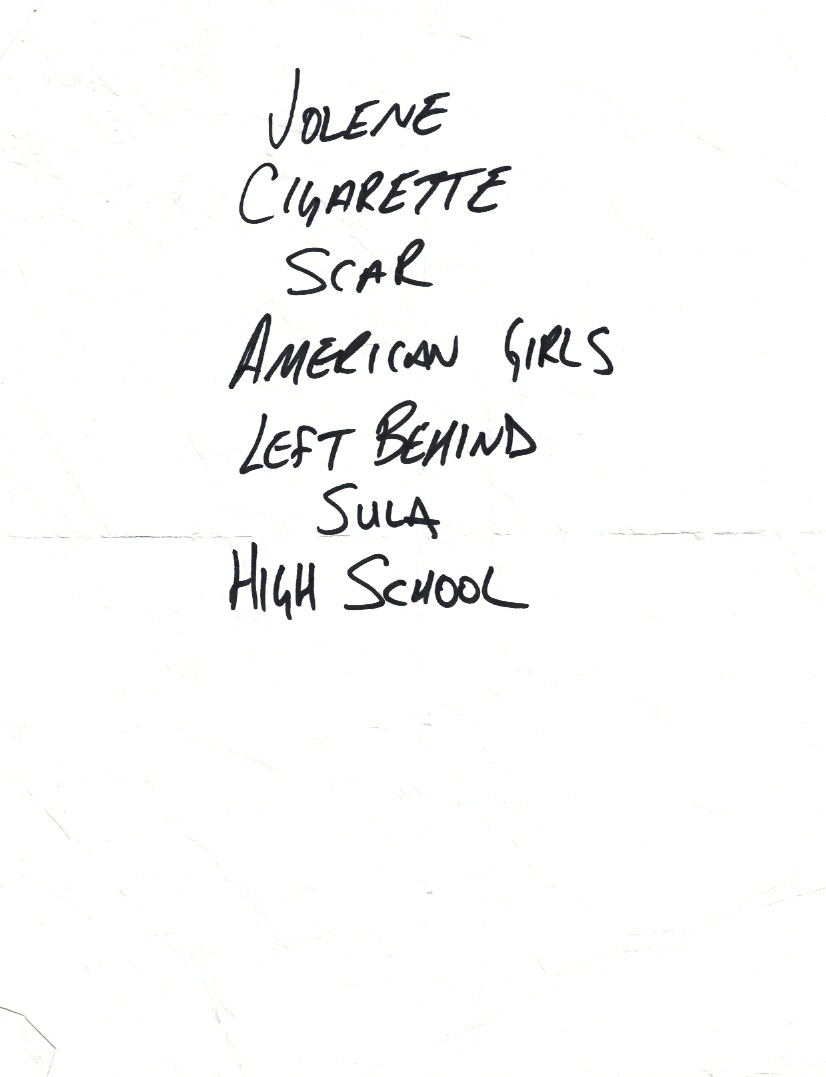 JOLENE
CIGARETTE
SCAR
AMERICAN GIRLS
LEFT BEHIND
SULA
HIGH SCHOOL